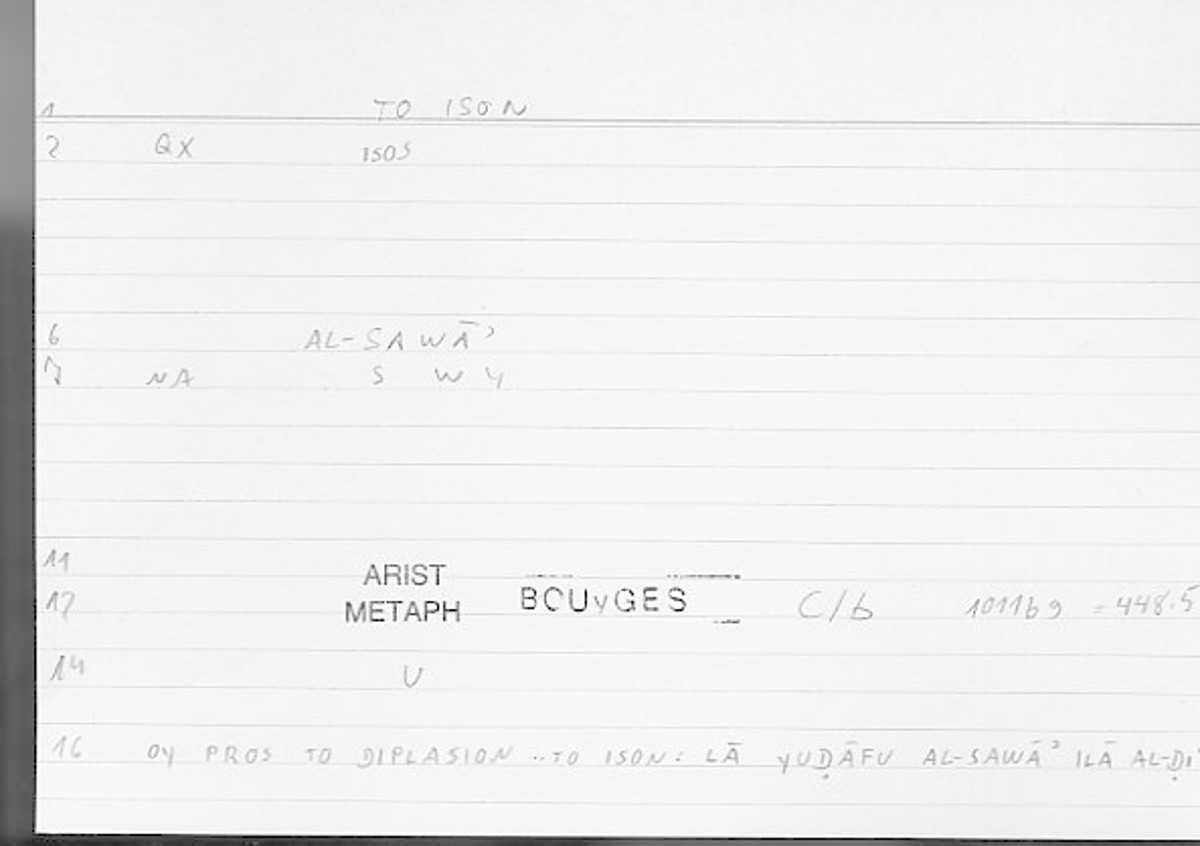 1 TO ISON
2 QX ISOS
6 AL-SAWĀʾ
7 NA S W Y
11 ARIST
12 METAPH BOUYGES C/b 1011b9 = 448.5
14 U
16 OY PROS TO DIPLASION ..TO ISON: LĀ YUḌĀFU AL-SAWĀʾ ILĀ AL-ḌI